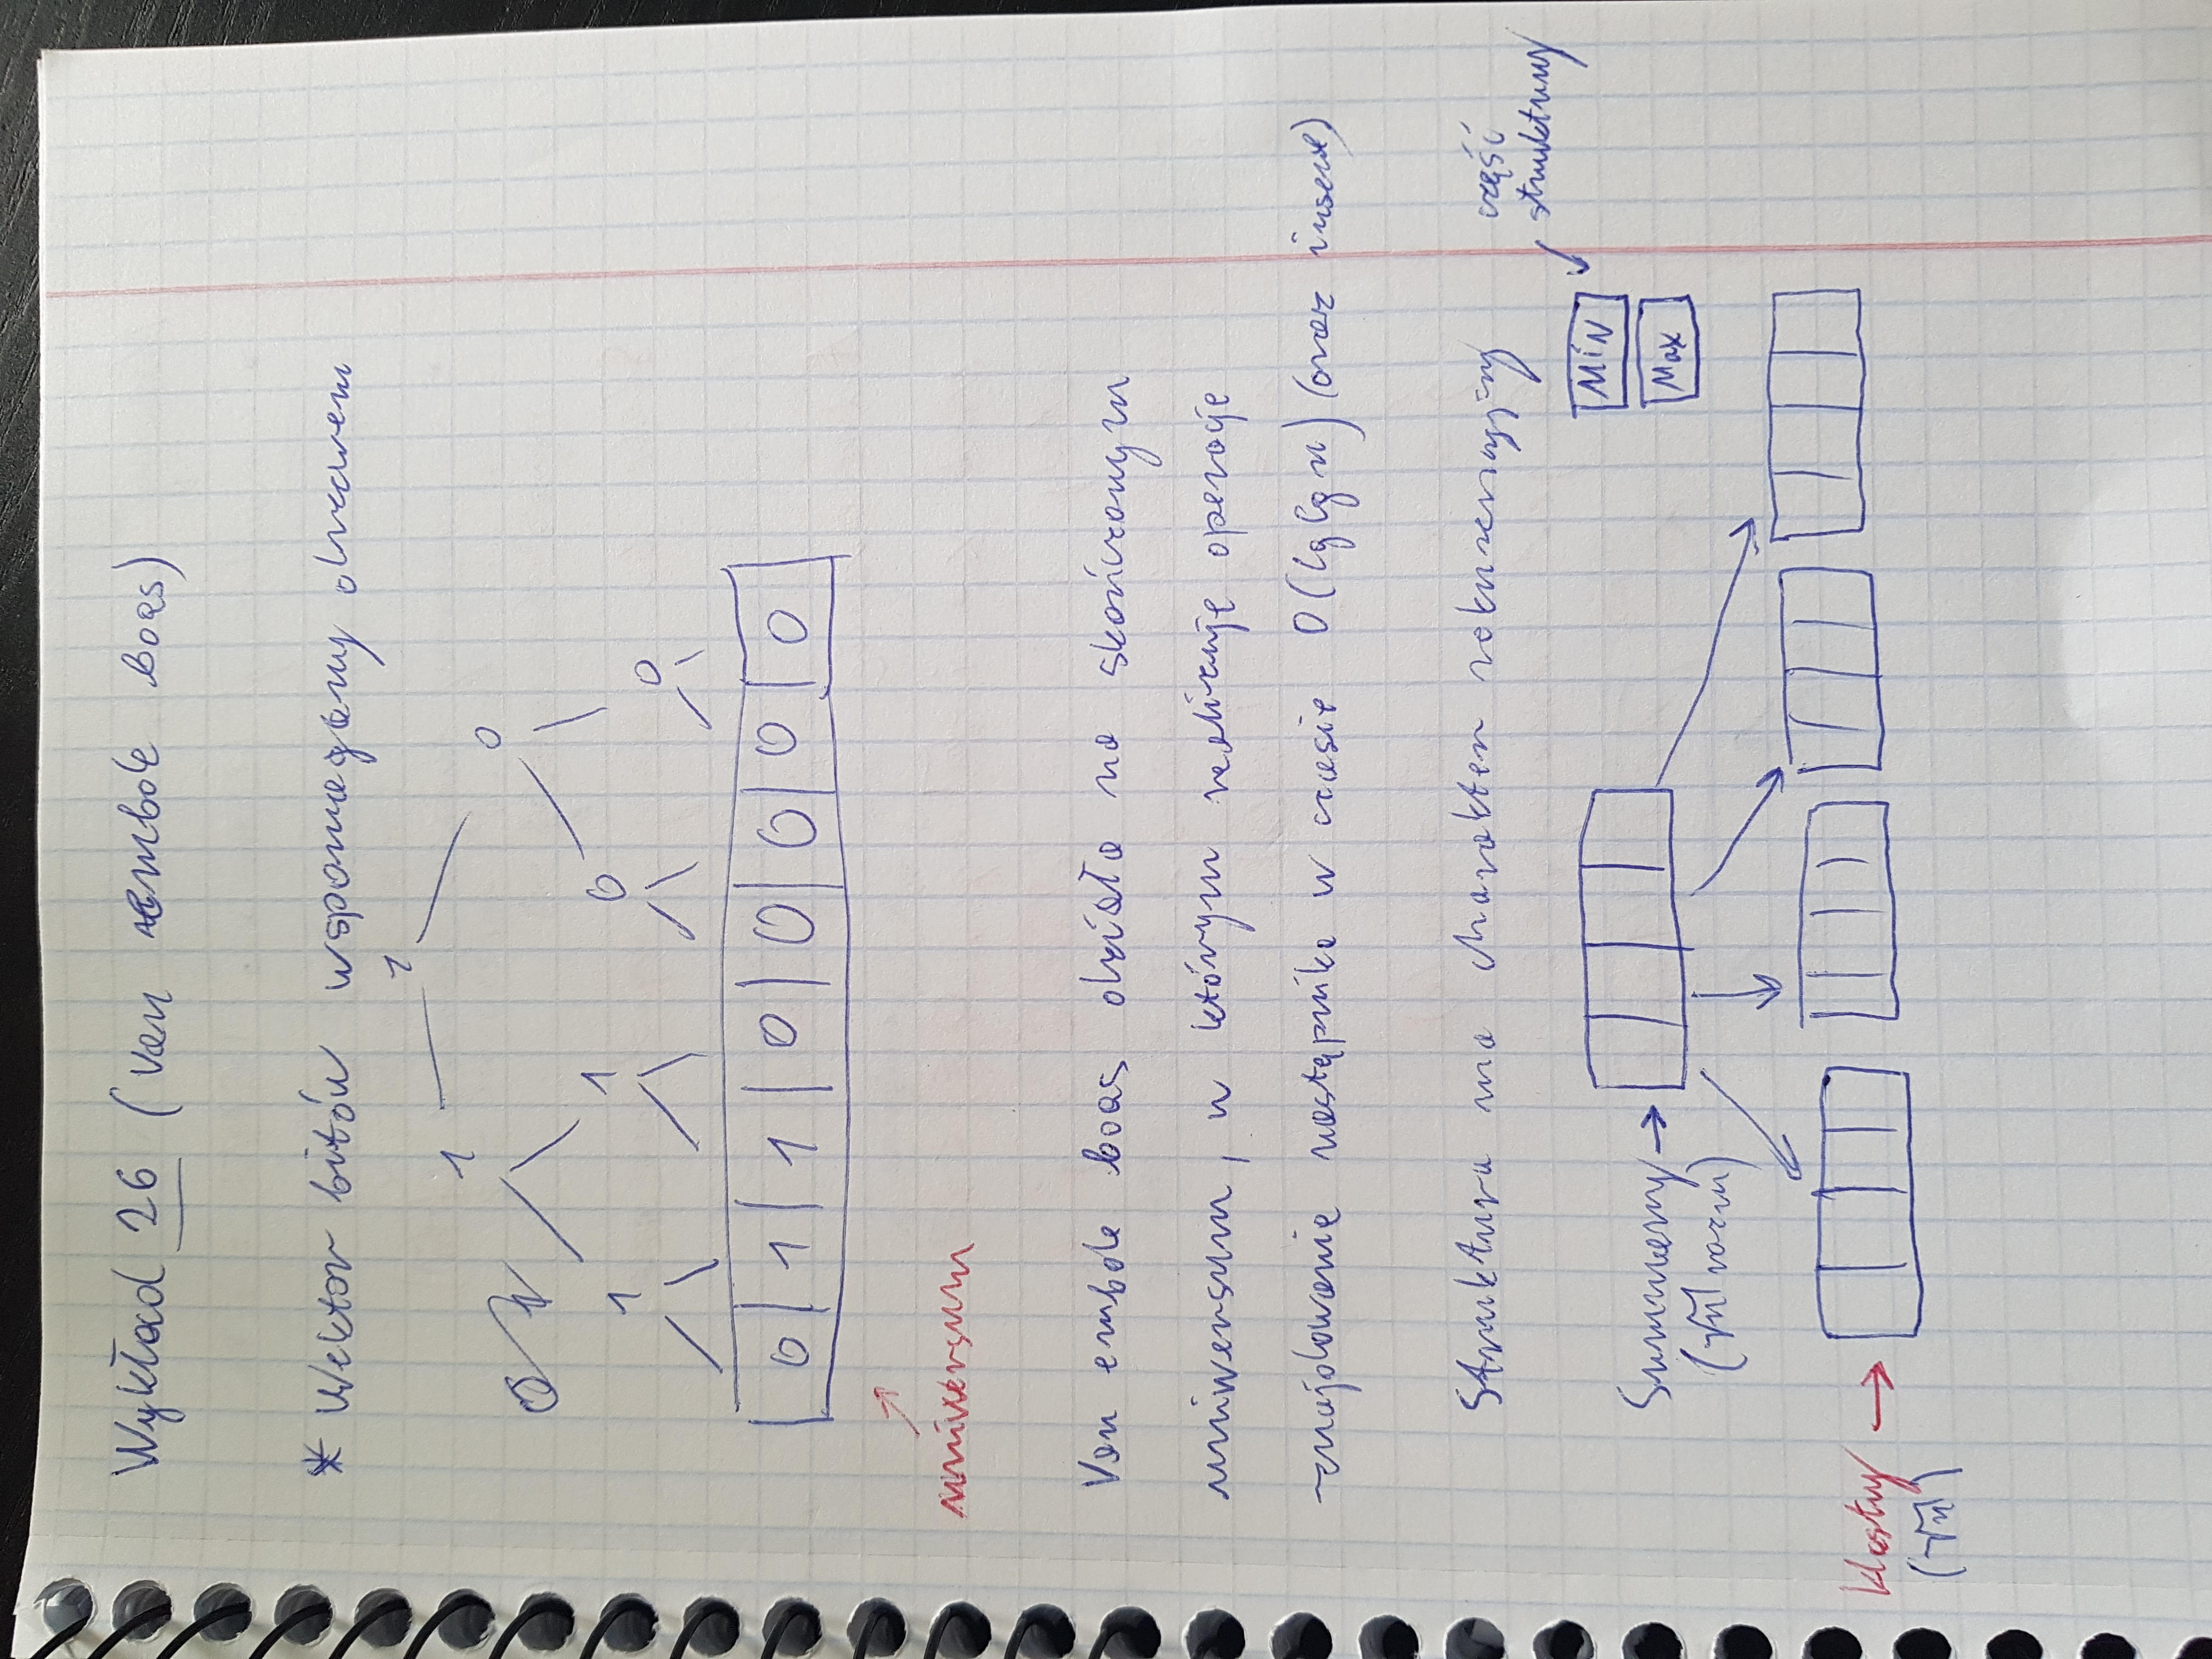 Wykład 26 (Van embde boas)
* Wektor bitów wspomagany drzewem
1
1 0
OR
1 1 0 0
0 1 1 0 0 0 0 0
uniwersum
Van embde boas działa na skończonym
uniwersum, w którym realizuje operacje
-znajdowanie następnika w czasie O(lglg n) (oraz insert)
Struktura ma charakter rekurencyjny
część
struktury
Min
Max
Summary →
(√n razem)
klastry →
(√n)